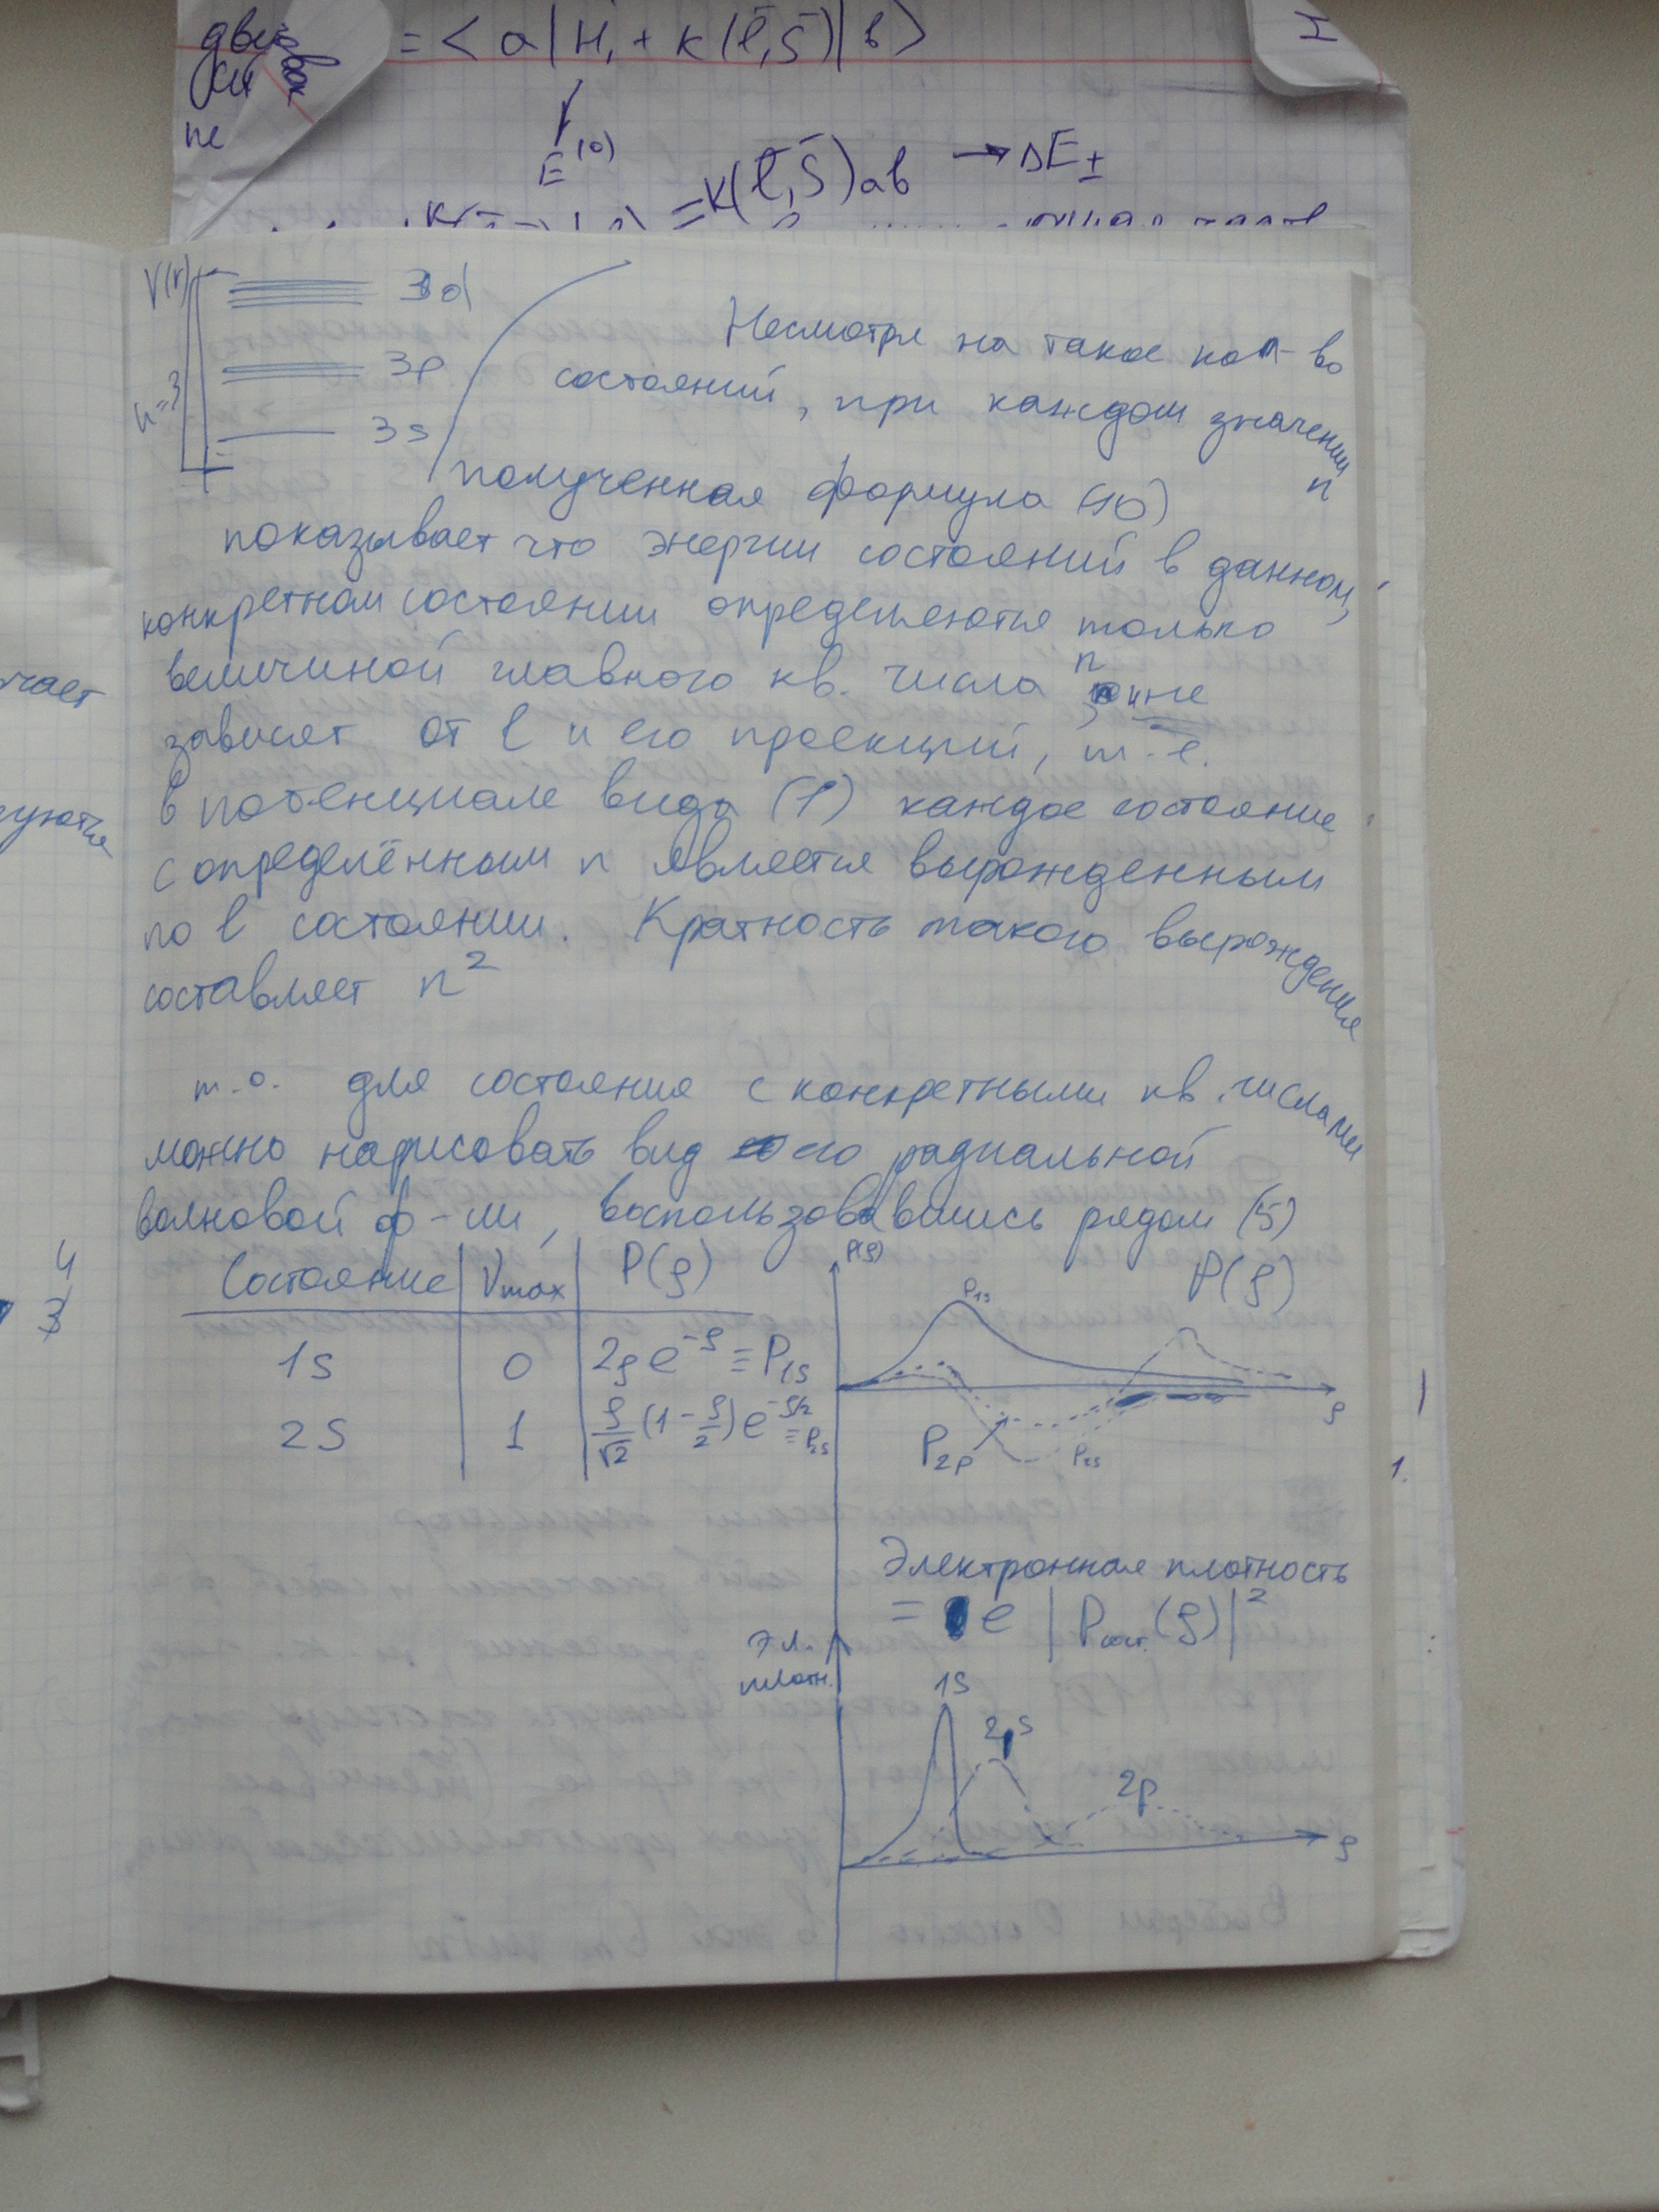 = < a | H₁ + K(l̄,s̄) | b >
E⁽⁰⁾
= K(l̄,s̄)ab → ΔE±
I
не
V(r)
n=3
3d
3p
3s
Несмотря на такое кол-во
состояний, при каждом значении n
полученная формула (10)
показывает что энергии состояний в данном,
конкретном состоянии определяются только
величиной главного кв. числа n, и не
зависят от l и его проекций, т.е.
в потенциале вида (1) каждое состояние
с определённым n является вырожденным
по l состоянии. Кратность такого вырождения
составляет n²
т.о. для состояния с конкретными кв. числами
можно нарисовать вид его радиальной
волновой ф-ии, воспользовавшись рядом (5)
Состояние | Vmax | P(ρ)
1s | 0 | 2ρe^-ρ ≡ P1s
2s | 1 | ρ/√2 (1 - ρ/2) e^-ρ/2 ≡ P2s
P(ρ)
P1s
P(ρ)
ρ
P2p
P2s
Электронная плотность
= e |Pсост.(ρ)|²
Эл.
плотн.
1s
2s
2p
ρ
чает
уются
4
3
1.